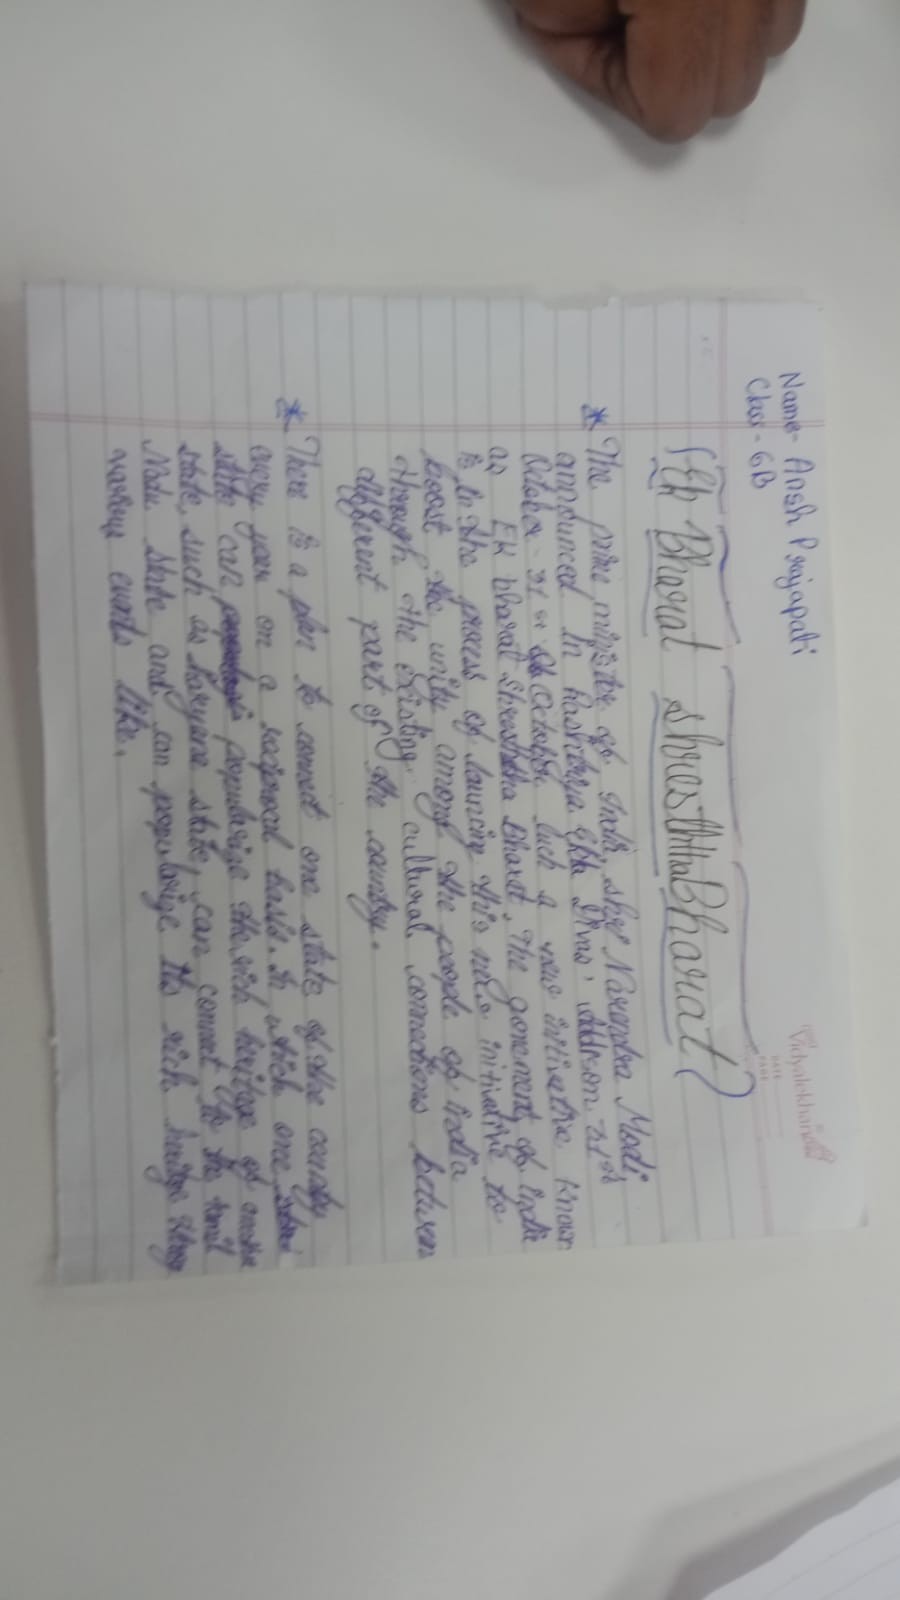 Vidyalekhan
Name- Ansh Prajapati
Class - 6B
Ek Bharat shresththa Bharat
* The prime minister of India, shri Narendra Modi
announced In hashtriya Ekta Divas, on 31st
October - 31st October. Such a new initiative known
as Ek bharat Shreshtha Bharat. The government of India
is In the process of launcing this new initiative to
boost the unity among the people of india
through the existing cultural connections between
different part of the country.
* There is a plan to connect one state of the country
every year on a reciprocal basis. In which one
state can popularize the rich heritage of another
state, such as haryana state, can connect to the tamil
Nadu state and can popularize its rich heritage through
various events like.